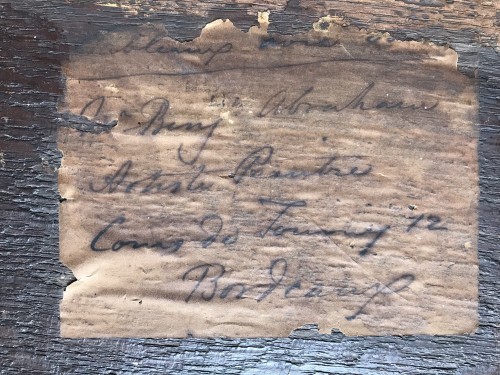 Mr Benj in Abraham
Artiste Peintre
Cours de Tourny 12
Bordeaux